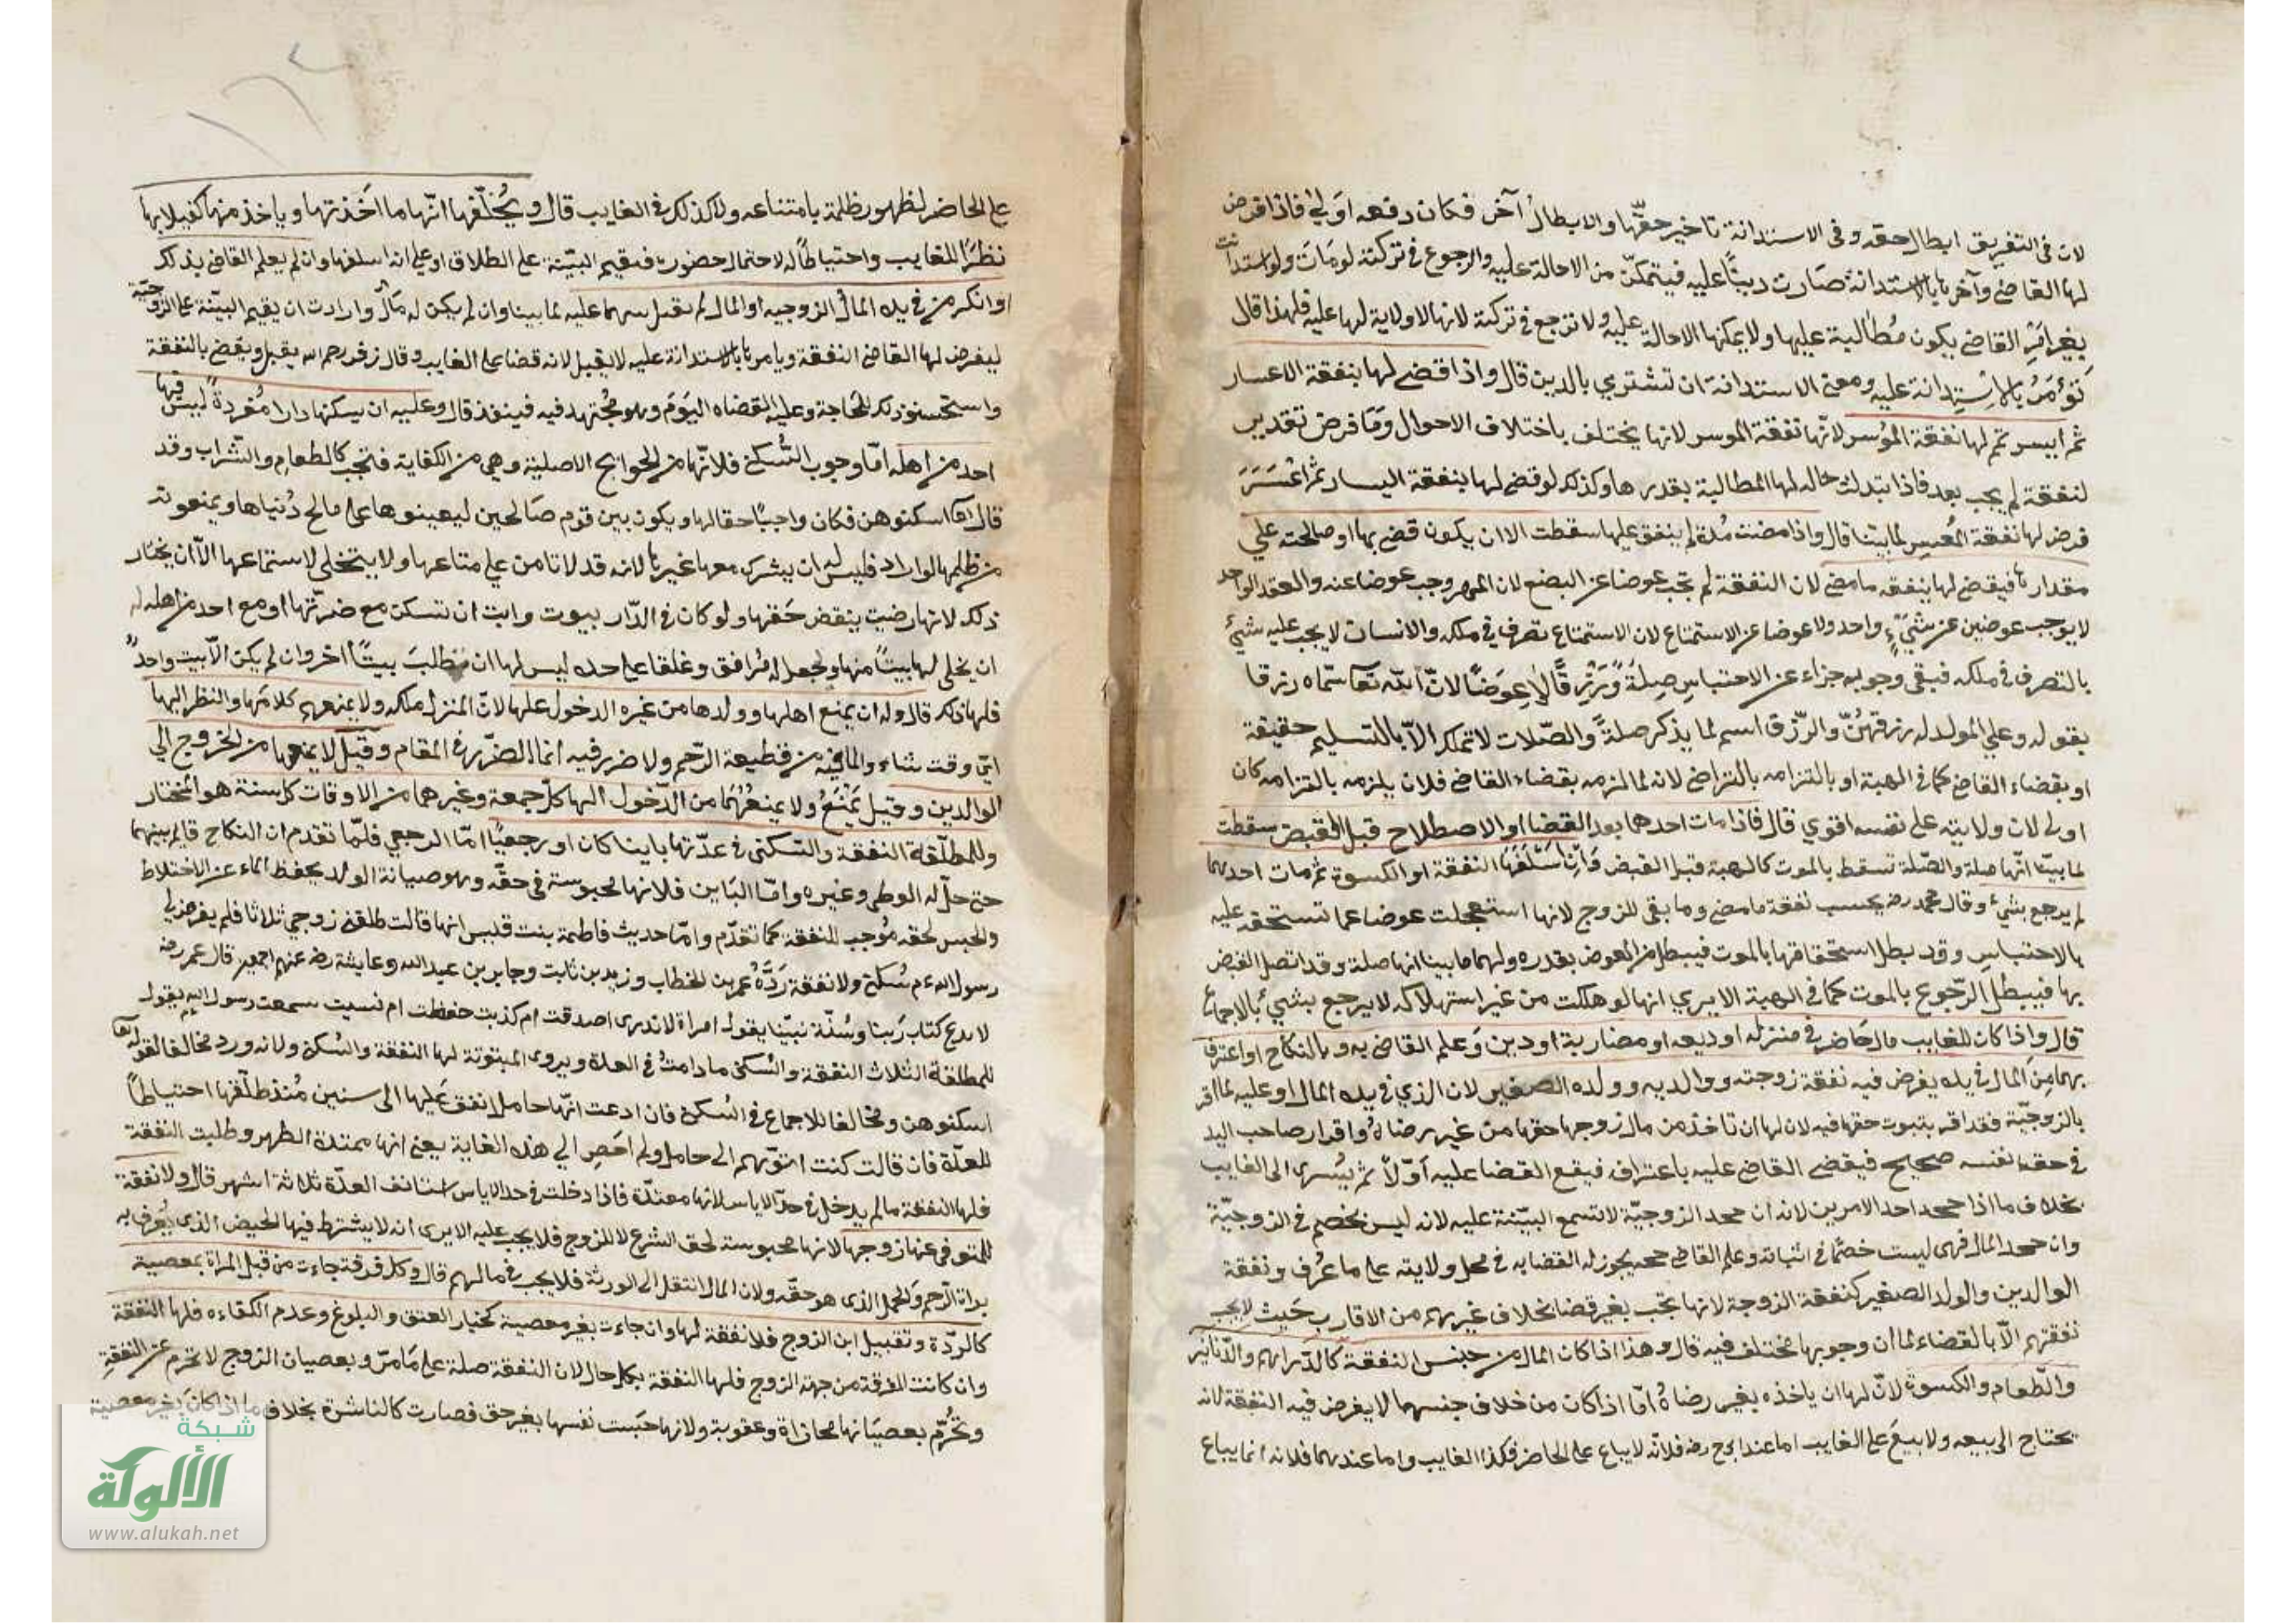 لان فى التفريق ابطال حقه وفى الاستدانة تاخير حقها والابطال آخر فكان دفعه اولي فاذا فرض
لها القاضي وآمرها بالاستدانة صارت دينًا عليه فيتمكن من الاحالة عليه والرجوع في تركته لومات ولو استدانت
بغير امر القاضي يكون مطالبة عليها ولا يمكنها الاحالة عليه ولا ترجع في تركته لانها لاولاية لها عليه فلهذا قال
تؤمر بالاستدانة عليه ومعنى الاستدانة ان تشتري بالدين قال واذا قضى لها بنفقة الاعسار
ثم ايسر تمم لها نفقة الموسر لانها نفقة الموسر لانها يختلف باختلاف الاحوال وما فرض تقدير
لنفقة لم يجب بعد فاذا تبدلت حاله لها المطالبة بقدرها وكذلك لو قضى لها بنفقة اليسار ثم اعسر
فرض لها نفقة المعسر لما بينا قال واذا مضت مدة لم ينفق عليها سقطت الا ان يكون قضى بها او صالحته علي
مقدارها فيقضى لها بنفقه ما مضي لان النفقة لم تجب عوضا عن البضع لان المهر وجب عوضا عنه والعقد الواحد
لا يوجب عوضين عن شيءٍ واحد ولا عوضا عن الاستمتاع لان الاستمتاع تصرف في ملكه والانسان لا يجب عليه شيء
بالتصرف في ملكه فبقى وجوبه جزاء عن الاحتباس صلةً ورزقًا لا عوضًا لان الله تعا سماه رزقا
بقوله وعلي المولود له رزقهن والرزق اسم لما يذكر صلةً والصلات لا تملك الا بالتسليم حقيقة
او بقضاء القاضي كما في الهبة او بالتزامه بالتراضي لانه لما لزمه بقضاء القاضي فلان يلزمه بالتزامه كان
اولى لان ولايته على نفسه اقوي قال فاذا مات احدهما بعد القضا او الاصطلاح قبل القبض سقطت
لما بينا انها صلة والصلة تسقط بالموت كالهبة قبل القبض وان اسلفها النفقة او الكسوة ثم مات احدهما
لم يرجع بشيء وقال محمد رض يحتسب نفقة ما مضي وما بقى للزوج لانها استعجلت عوضا عما تستحقه عليه
بالاحتباس وقد بطل استحقاقها بالموت فيبطل من العوض بقدره ولهما ما بينا انها صلة وقد اتصل القبض
بها فيبطل الرجوع بالموت كما في الهبة الا يري انها لو هلكت من غير استهلاك لا يرجع بشيء بالاجماع
قال واذا كان للغايب مال حاضر في منزله او وديعه او مضاربة او دين وعلم القاضي به وبالنكاح او اعترف
بهما من المال في يده يفرض فيه نفقة زوجته ووالديه وولده الصغير لان الذي في يده المال او عليه لما اقر
بالزوجية فقد اقر بثبوت حقها فيه لان لها ان تاخذ من مال زوجها حقها من غير رضاه واقرار صاحب اليد
في حق نفسه صحيح فيقضي القاضي عليه باعترافه فيقع القضا عليه اولاً ثم يسرى الى الغايب
بخلاف ما اذا جحد احد الامرين لانه ان جحد الزوجية لا تسمع البينة عليه لانه ليس بخصم في الزوجية
وان جحد المال فهى ليست خصما في اثباته وعلم القاضي حجة يجوز له القضا به في محل ولايته على ما عرف ونفقة
الوالدين والولد الصغير كنفقة الزوجة لانها تجب بغير قضا بخلاف غيرهم من الاقارب حيث لا يجب
نفقتهم الا بالقضاء لما ان وجوبها مختلف فيه قال وهذا اذا كان المال من جنس النفقة كالدراهم والدنانير
والطعام والكسوة لان لها ان ياخذه بغير رضاه اما اذا كان من خلاف جنسهما لا يفرض فيه النفقة لانه
يحتاج الى بيعه ولا بيع على الغايب اما عند ابي ح رضه فلانه لا يباع على الحاضر فكذا الغايب واما عندهما فلانه انما يباع
على الحاضر لظهور ظلمه بامتناعه ولا كذلك في الغايب قال ويحلفها انها ما اخذتها وياخذ منها كفيلا بها
نظرًا للغايب واحتياطًا له لاحتمال حضوره فيقيم البينة على الطلاق او على انه اسلفها وان لم يعلم القاضي بذلك
او انكر من في يده المال الزوجيه او المال لم تقبل بينتها عليه لما بينا وان لم يكن له مال وارادت ان يقيم البينة على الزوجية
ليفرض لها القاضي النفقة ويامرها بالاستدانة عليه لا يقبل لانه قضا على الغايب وقال زفر رحمه الله يقبل ويقضى بالنفقة
واستحسنوا ذلك للحاجة وعليه القضاه اليوم وهو مجتهد فيه فينفذ قال وعليه ان يسكنها دارا مفردةً ليس فيها
احد من اهله اما وجوب السكنى فلانها من الحوايج الاصلية وهي من الكفاية فتجب كالطعام والشراب وقد
قال تعا اسكنوهن فكان واجبًا حقا لها ويكون بين قوم صالحين ليعينوها على مصالح دنياها ويمنعونه
من ظلمها لو اراد فليس له ان يشرك معها غيرها لانه قد لا تامن على متاعها ولا يتخلى لاستمتاعها الا ان يختار
ذلك لانها رضيت بنقض حقها ولو كان في الدار بيوت وابت ان تسكن مع ضرتها او مع احد من اهله له
ان يخلى لها بيتًا منها ويجعل له مرافق وغلقا على حده ليس لها ان تطلب بيتًا آخر وان لم يكن الا بيت واحد
فلها ذلك قال وله ان يمنع اهلها وولدها من غيره الدخول عليها لان المنزل ملكه ولا يمنعهم كلامها والنظر اليها
اي وقت شاء والما فيه من قطيعة الرحم ولا ضرر فيه انما الضرر في المقام وقيل لا يمنعها من الخروج الي
الوالدين وقيل يمنع ولا يمنعهما من الدخول اليها كل جمعة وغيرهما من الاوقات كل سنة هو المختار
وللمطلقة النفقة والسكنى في عدتها باينا كان او رجعيًا اما الرجعي فلما تقدم ان النكاح قايم بينهما
حتى حل له الوطى وغيره واما الباين فلانها محبوسة في حقه وهو صيانة الولد بحفظ الماء عن الاختلاط
والحبس لحقه موجب للنفقة كما تقدم واما حديث فاطمة بنت قيس انها قالت طلقني زوجي ثلاثا فلم يفرض لي
رسول الله ع م سكنى ولا نفقة رده عمر بن الخطاب وزيد بن ثابت وجابر بن عبد الله وعايشة رض عنهم اجمعين قال عمر رضه
لا ندع كتاب ربنا وسنة نبينا بقول امراة لا ندرى اصدقت ام كذبت حفظت ام نسيت سمعت رسول الله يقول
للمطلقة الثلاث النفقة والسكنى ما دامت في العدة ويروى المبتوتة لها النفقة والسكنى ولانه ورد مخالفا لقوله تعا
اسكنوهن ومخالفا للاجماع في السكنى فان ادعت انها حامل انفق عليها الى سنين منذ طلقها احتياطًا
للعدة فان قالت كنت اتوهم انى حامل ولم احض الي هذه الغاية يعنى انها ممتدة الطهر وطلبت النفقة
فلها النفقة ما لم يدخل في حد الاياس لانها معتدة فاذا دخلت في حد الاياس استانف العدة ثلاثة اشهر قال ولا نفقة
للمتوفى عنها زوجها لانها محبوسة لحق الشرع لا للزوج فلا يجب عليه الا يرى انه لا يشترط فيها الحيض الذى يعرف به
براة الرحم والحمل الذى هو حقه ولان المال انتقل الى الورثة فلا يجب في مالهم قال وكل فرقة جاءت من قبل المراة بمعصية
كالردة وتقبيل ابن الزوج فلا نفقة لها وان جاءت بغير معصية كخيار العتق والبلوغ وعدم الكفاءه فلها النفقة
وان كانت الفرقة من جهة الزوج فلها النفقة بكل حال لان النفقة صلة على ما مر وبعصيان الزوج لا تحرم عن النفقة
وتحرم بعصيانها مجازاة وعقوبة ولانها حبست نفسها بغير حق فصارت كالناشزة بخلاف ما اذا كان بغير معصية
شبكة
الألوكة
www.alukah.net